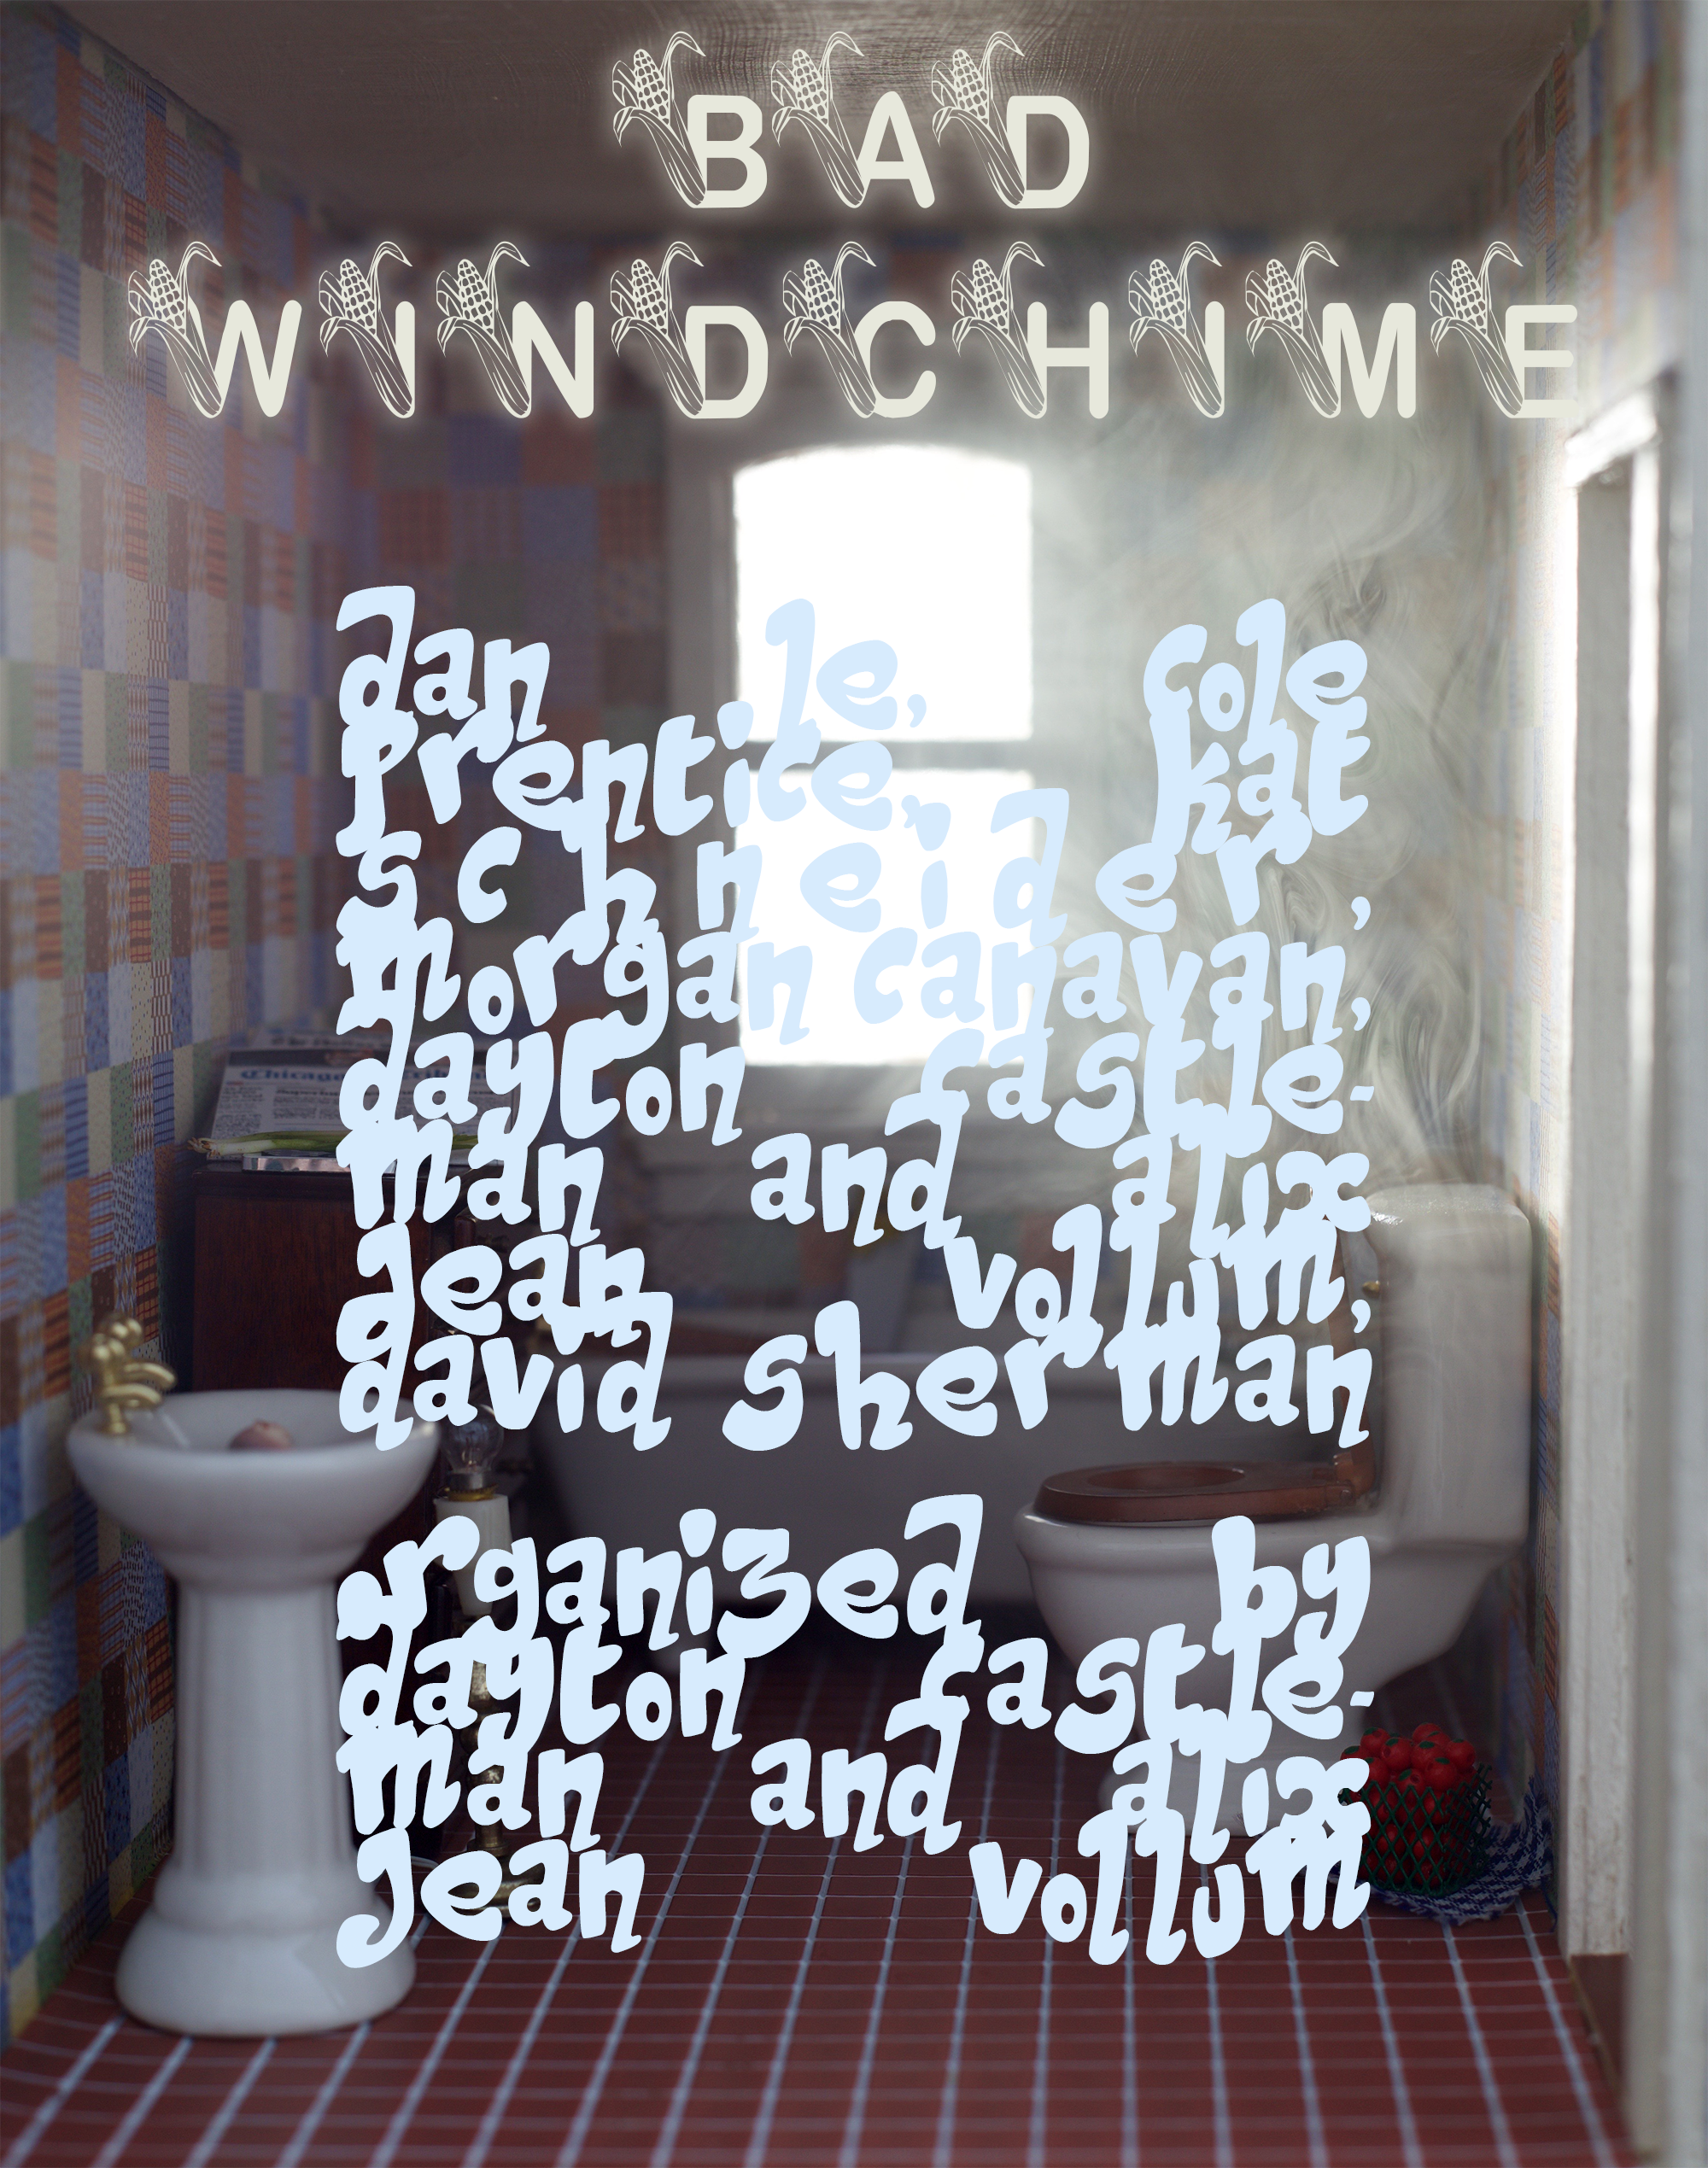 BAD
WINDCHIME
dan le, cole
prentice, kat
schneider,
morgan canavan,
dayton castle-
man and alix
jean vollum,
david sherman
organized by
dayton castle-
man and alix
jean vollum
Chicago Tribune